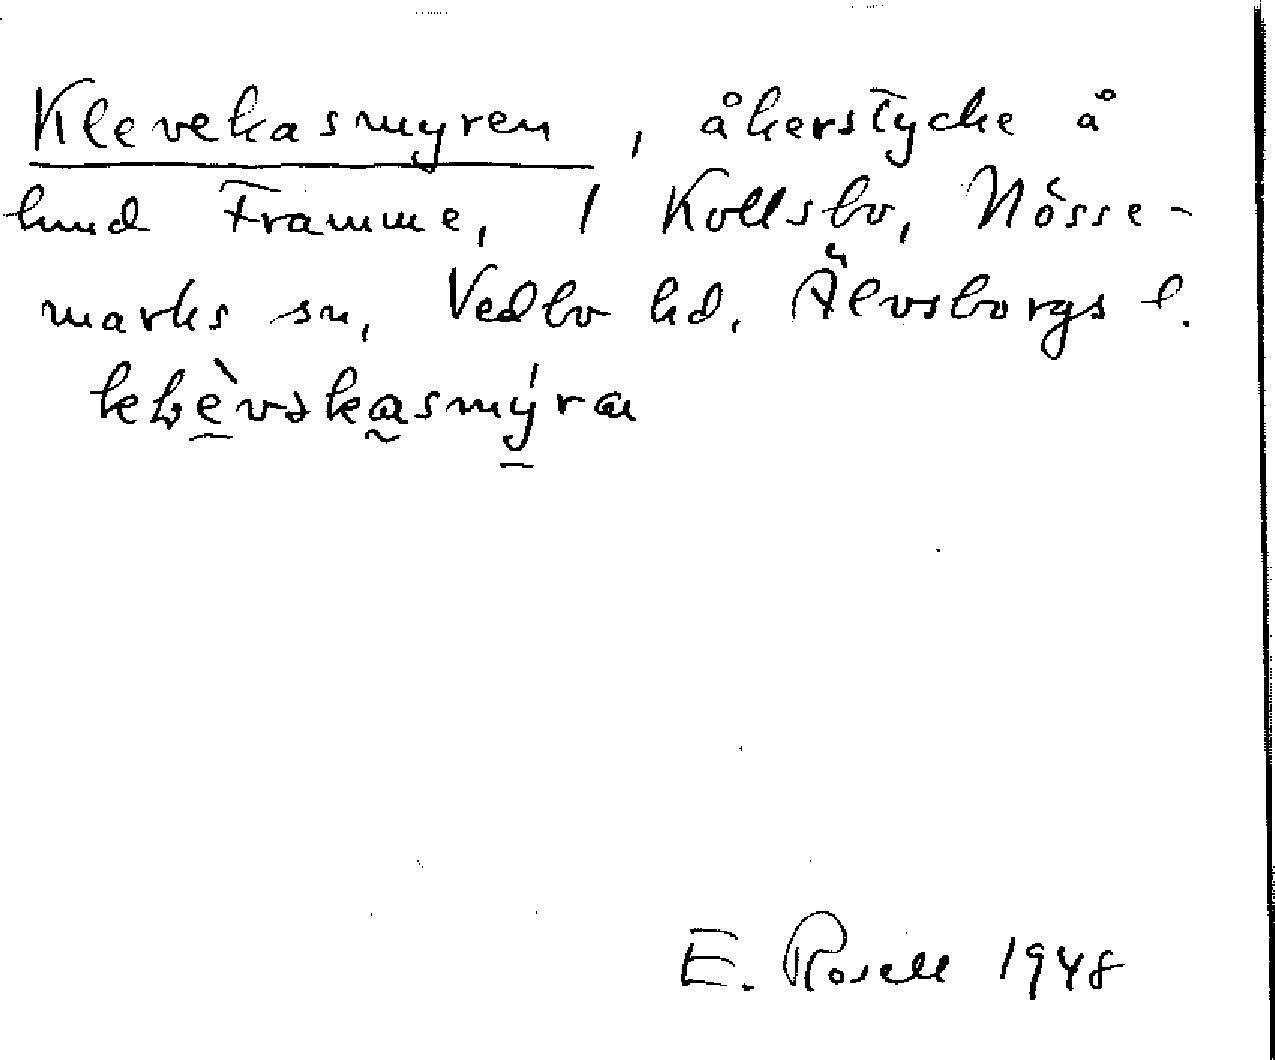 Klevekasmyren, åkerstycke å
lund Framme, 1 Kollsbo, Nösse-
marks sn, Vedbo hd, Älvsborgs l.
E. Rosell 1948